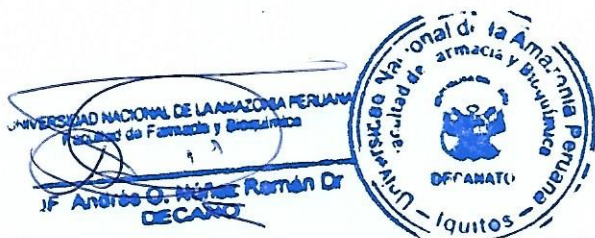 UNIVERSIDAD NACIONAL DE LA AMAZONIA PERUANA
Facultad de Farmacia y Bioquímica
Andrés O. Núñez Román Dr
DECANO
Universidad Nacional de la Amazonia Peruana
Facultad de Farmacia y Bioquímica
DECANATO
Iquitos